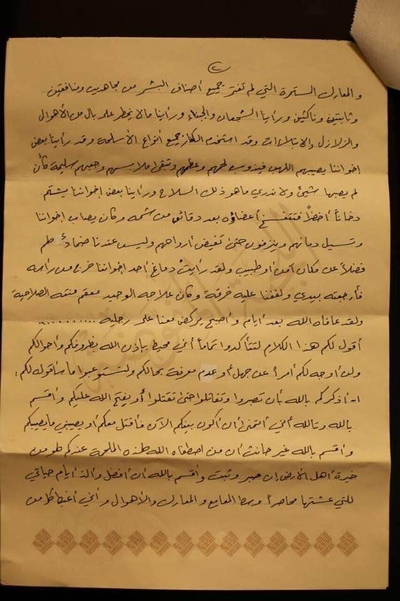 (٢)
والمعارك المستمرة التي لم تفتر جميع أصناف البشر من مجاهدين ومنافقين
وثابتين وناكثين ورأينا الشجعان والجبناء ورأينا ما لا يخطر على بال من الأهوال
والزلازل والابتلاءات وقد استخدم الكفار جميع أنواع الأسلحة وقد رأينا بعض
إخواننا يصيبهم اللهب فيذوب لحمهم وعظمهم وتبقى ملابسهم وجعبهم سليمة كأن
لم يصبها شيئ ولا ندري ما هو ذلك السلاح ورأينا بعض إخواننا يشتم
دخاناً أخضراً فتتفسخ أعضاؤه بعد دقائق من شمه وكان يصاب إخواننا
وتسيل دماءهم وينزفون حتى تفيض أرواحهم وليس عندنا ضماد
فضلاً عن مكان آمن أو طبيب ولقد رأيت دماغ أحد إخواننا خرج من رأسه
فأرجعته بيدي ولففنا عليه خرقة وكان علاجه الوحيد معقم منتهي الصلاحية
ولقد عافاه الله بعد أيام وأصبح يركض معنا على رجليه ..........
أقول لكم هذا الكلام لتتأكدوا تماماً أني محيط بإذن الله بظروفكم وأحوالكم
ولن أوجه لكم أمراً عن جهل أو عدم معرفة بحالكم ولتستوعبوا ما سأقوله لكم:
١- أذكركم بالله بأن تصبروا وتقاتلوا حتى تقتلوا أو يفتح الله عليكم وأقسم
بالله وتالله أني أتمنى أن أكون بينكم الآن فأقتل معكم أو يصيبني ما يصيبكم
وأقسم بالله غير حانث أن من اصطفاه الله لهذه الملحمة عندكم لهو من
خيرة أهل الأرض إن صبر وثبت وأقسم بالله أن أفضل وألذ أيام حياتي
للتي عشتها محاصراً وسط المعامع والمعارك والأهوال وإني أغبط كل من